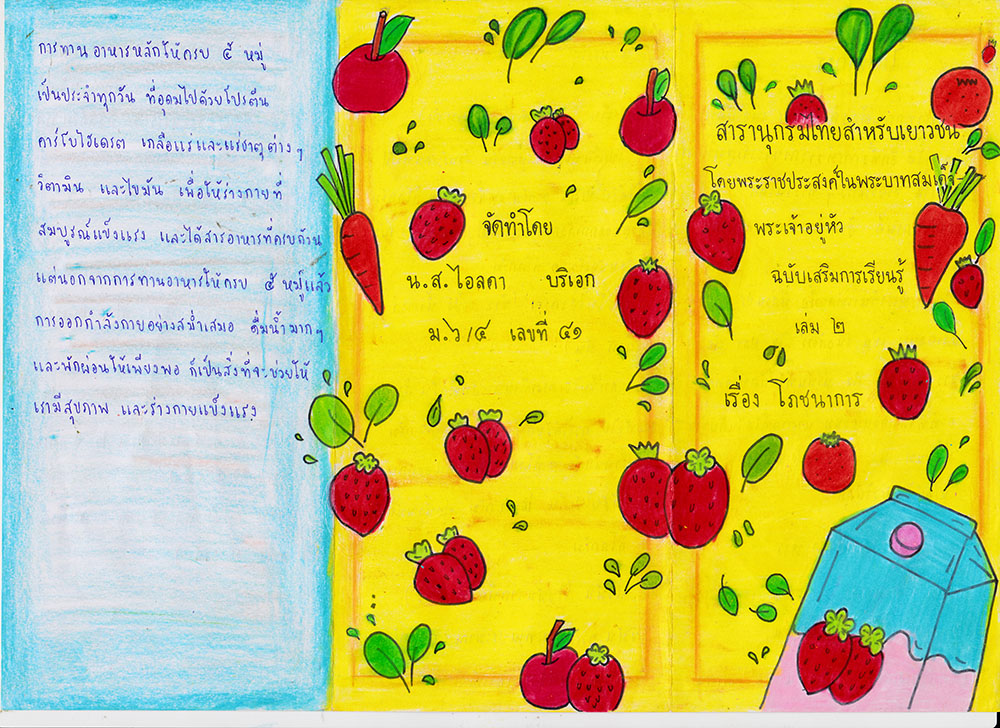 การทานอาหารหลักให้ครบ ๕ หมู่
เป็นประจำทุกวัน ที่อุดมไปด้วยโปรตีน
คาร์โบไฮเดรต เกลือแร่และแร่ธาตุต่างๆ
วิตามิน และไขมัน เพื่อให้ร่างกายที่
สมบูรณ์แข็งแรง และได้สารอาหารที่ครบถ้วน
แต่นอกจากการทานอาหารให้ครบ ๕ หมู่แล้ว
การออกกำลังกายอย่างสม่ำเสมอ ดื่มน้ำมากๆ
และพักผ่อนให้เพียงพอ ก็เป็นสิ่งที่จะช่วยให้
เรามีสุขภาพ และร่างกายแข็งแรง
จัดทำโดย
น.ส.ไอลดา บริเอก
ม.๖/๔ เลขที่ ๔๑
สารานุกรมไทยสำหรับเยาวชน
โดยพระราชประสงค์ในพระบาทสมเด็จ
พระเจ้าอยู่หัว
ฉบับเสริมการเรียนรู้
เล่ม ๒
เรื่อง โภชนาการ